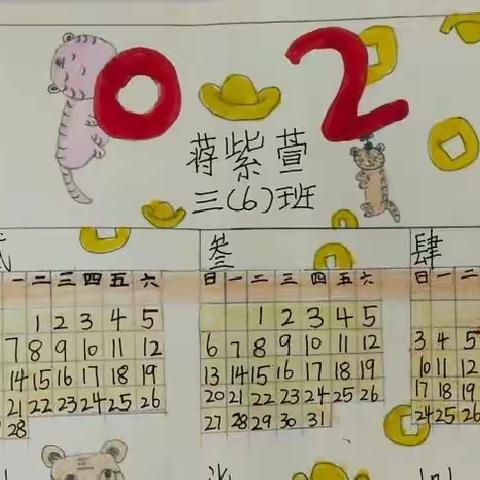 0 2
蒋紫萱
三(6)班
贰 叁 肆
一 二 三 四 五 六 日 一 二 三 四 五 六 日 一 二
1 2 3 4 5 1 2 3 4 5
7 8 9 10 11 12 6 7 8 9 10 11 12 3 4 5
14 15 16 17 18 19 13 14 15 16 17 18 19 10 11 12
21 22 23 24 25 26 20 21 22 23 24 25 26 17 18 19
28 27 28 29 30 31 24 25 26